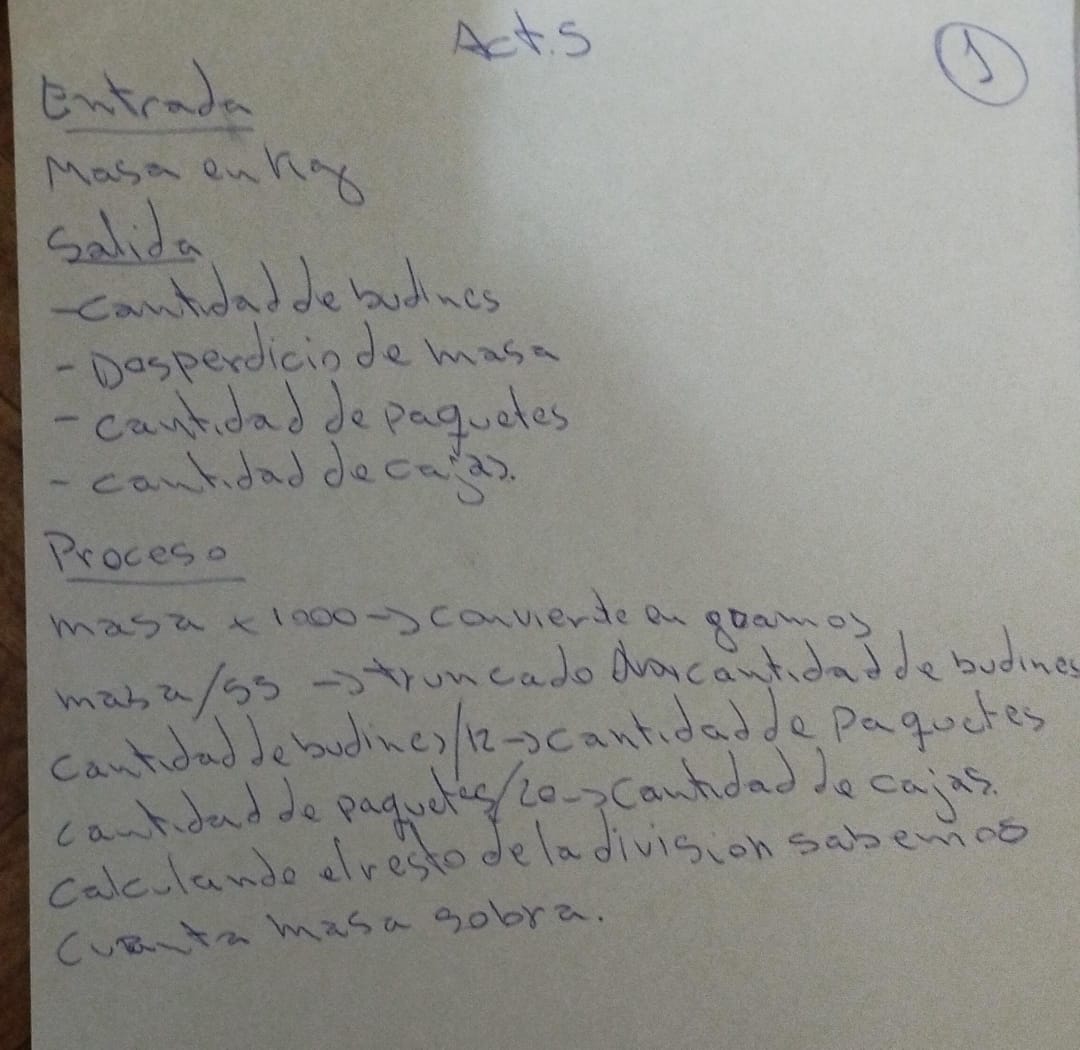 Act.5
1
Entrada
Masa en Kg
Salida
-cantidad de budines
- Desperdicio de masa
- cantidad de paquetes
- cantidad de cajas.
Proceso
masa x 1000 -> convierte en gramos
masa/55 -> truncado cantidad de budines
cantidad de budines/12 -> cantidad de paquetes
cantidad de paquetes/20 -> cantidad de cajas.
calculando el resto de la division sabemos
cuanta masa sobra.